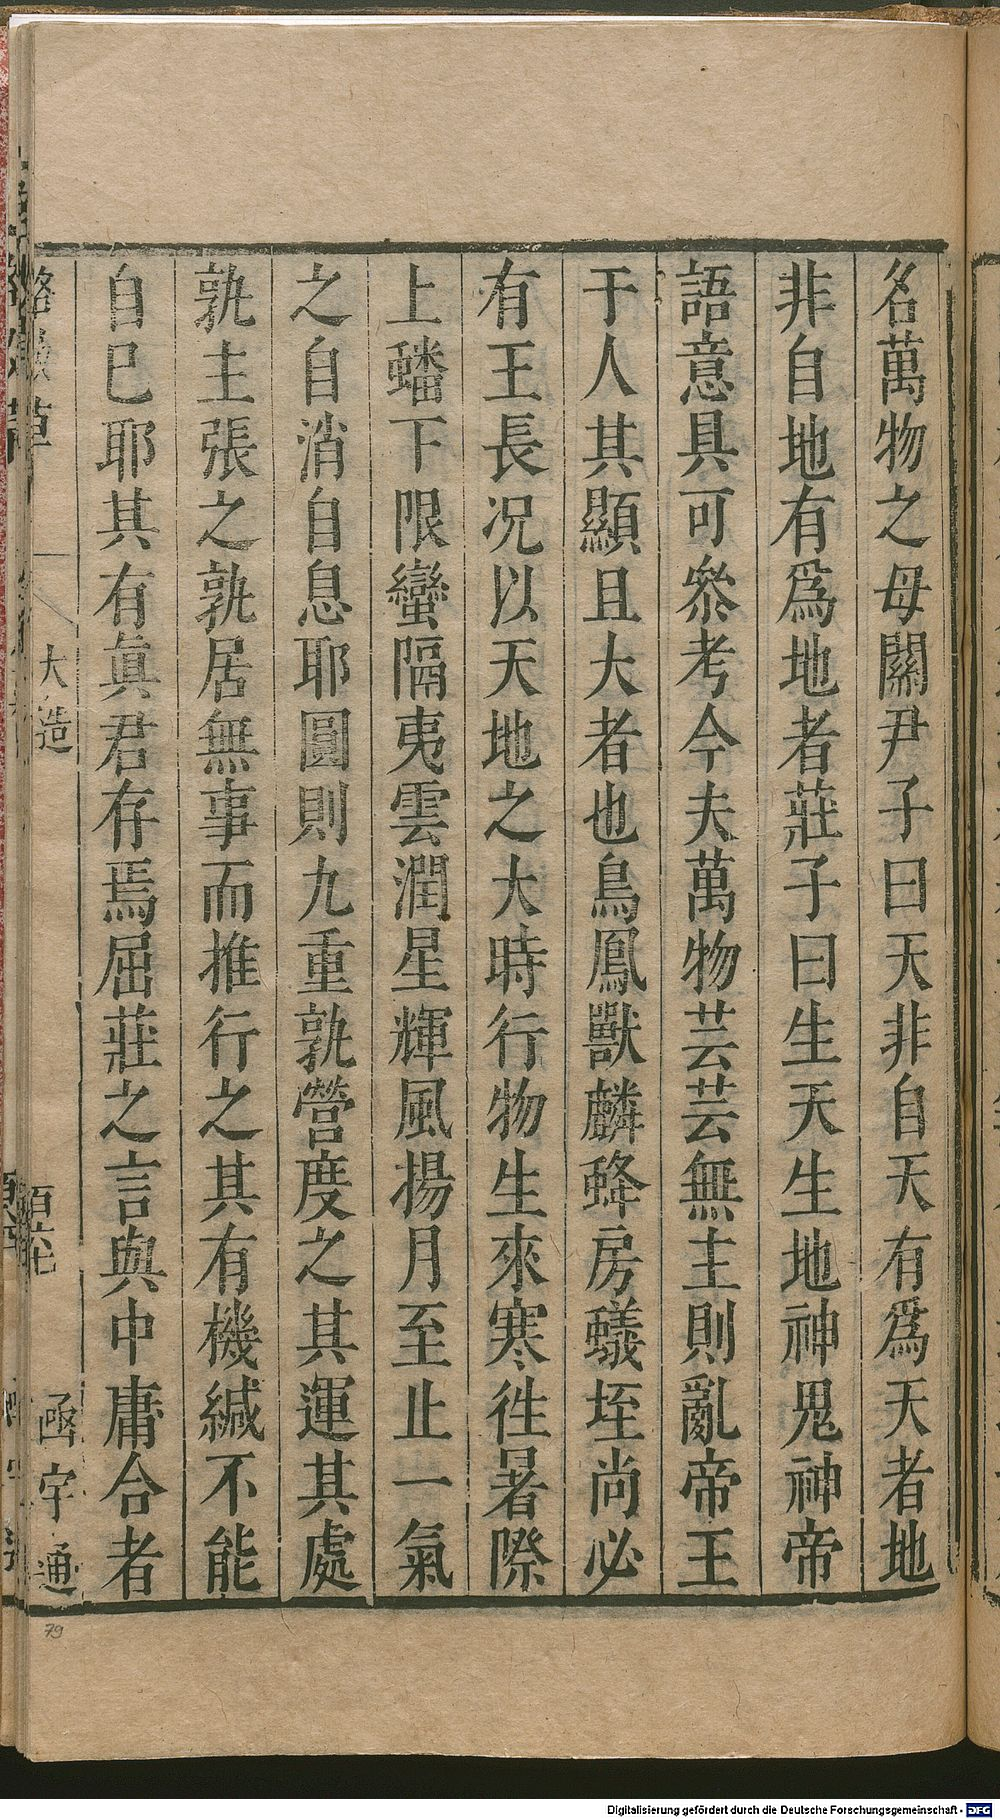 名萬物之母關尹子曰天非自天有爲天者地
非自地有爲地者莊子曰生天生地神鬼神帝
語意具可叅考今夫萬物芸芸無主則亂帝王
于人其顯且大者也鳥鳳獸麟蜂房蟻垤尚必
有王長况以天地之大時行物生來寒徃暑際
上蟠下限蠻隔夷雲潤星輝風揚月至止一氣
之自消自息耶圓則九重孰營度之其運其處
孰主張之孰居無事而推行之其有機緘不能
自已耶其有眞君存焉屈莊之言與中庸合者
格致草
大造
百六七
函宇通
79
Digitalisierung gefördert durch die Deutsche Forschungsgemeinschaft - DFG